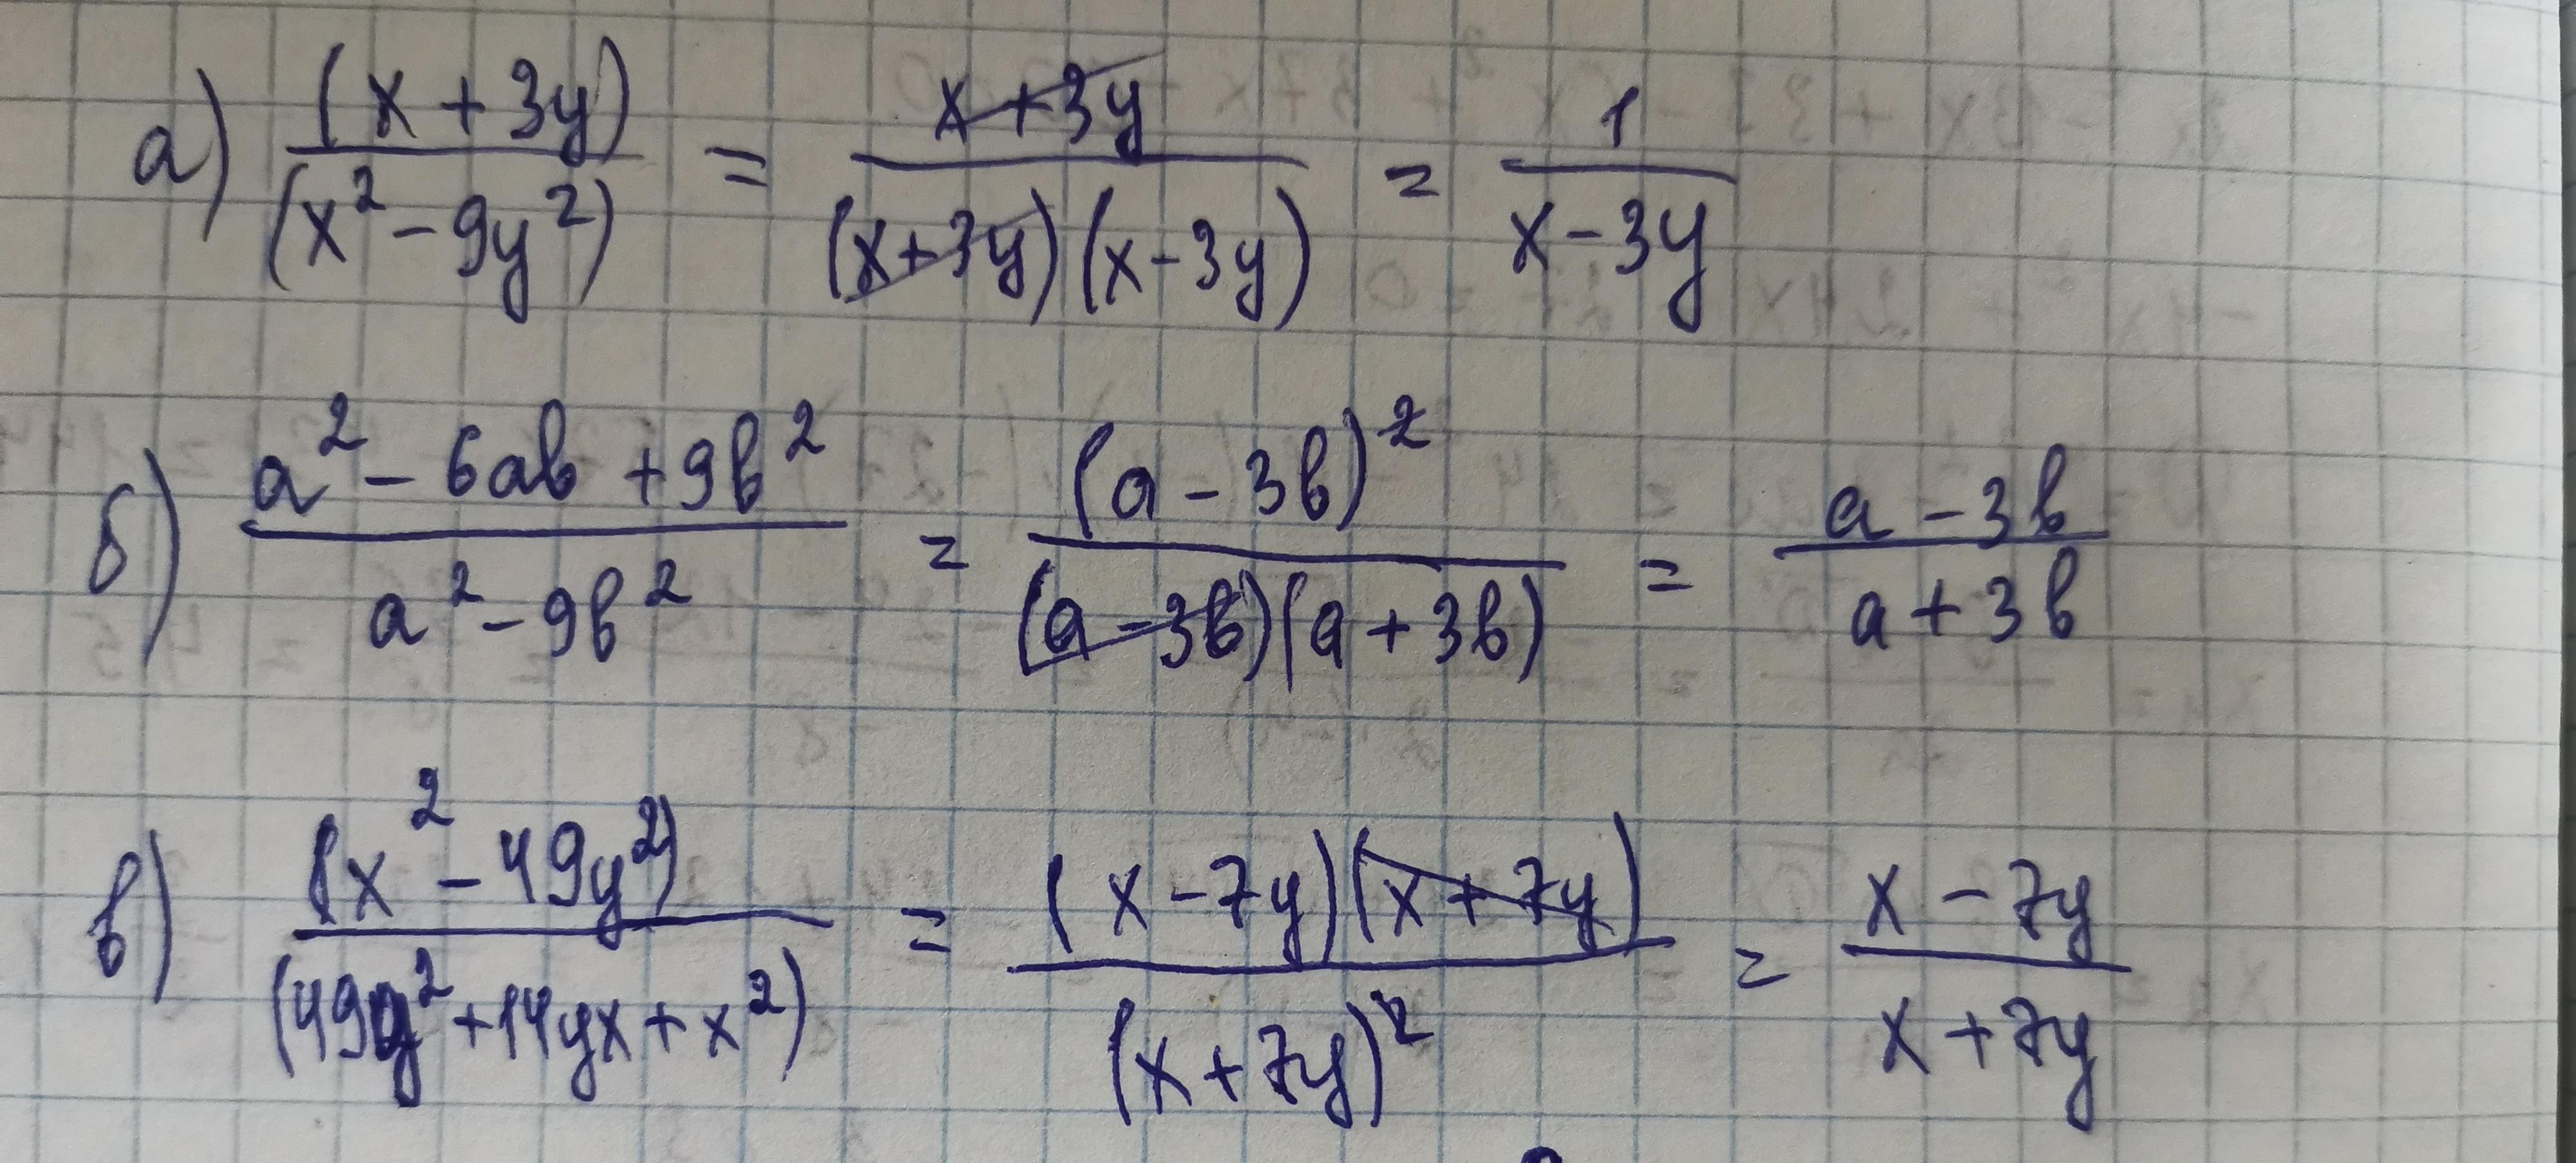 а) (x + 3y) / (x² - 9y²) = x + 3y / (x + 3y)(x - 3y) = 1 / x - 3y
б) a² - 6ab + 9b² / a² - 9b² = (a - 3b)² / (a - 3b)(a + 3b) = a - 3b / a + 3b
в) (x² - 49y²) / (49y² + 14yx + x²) = (x - 7y)(x + 7y) / (x + 7y)² = x - 7y / x + 7y